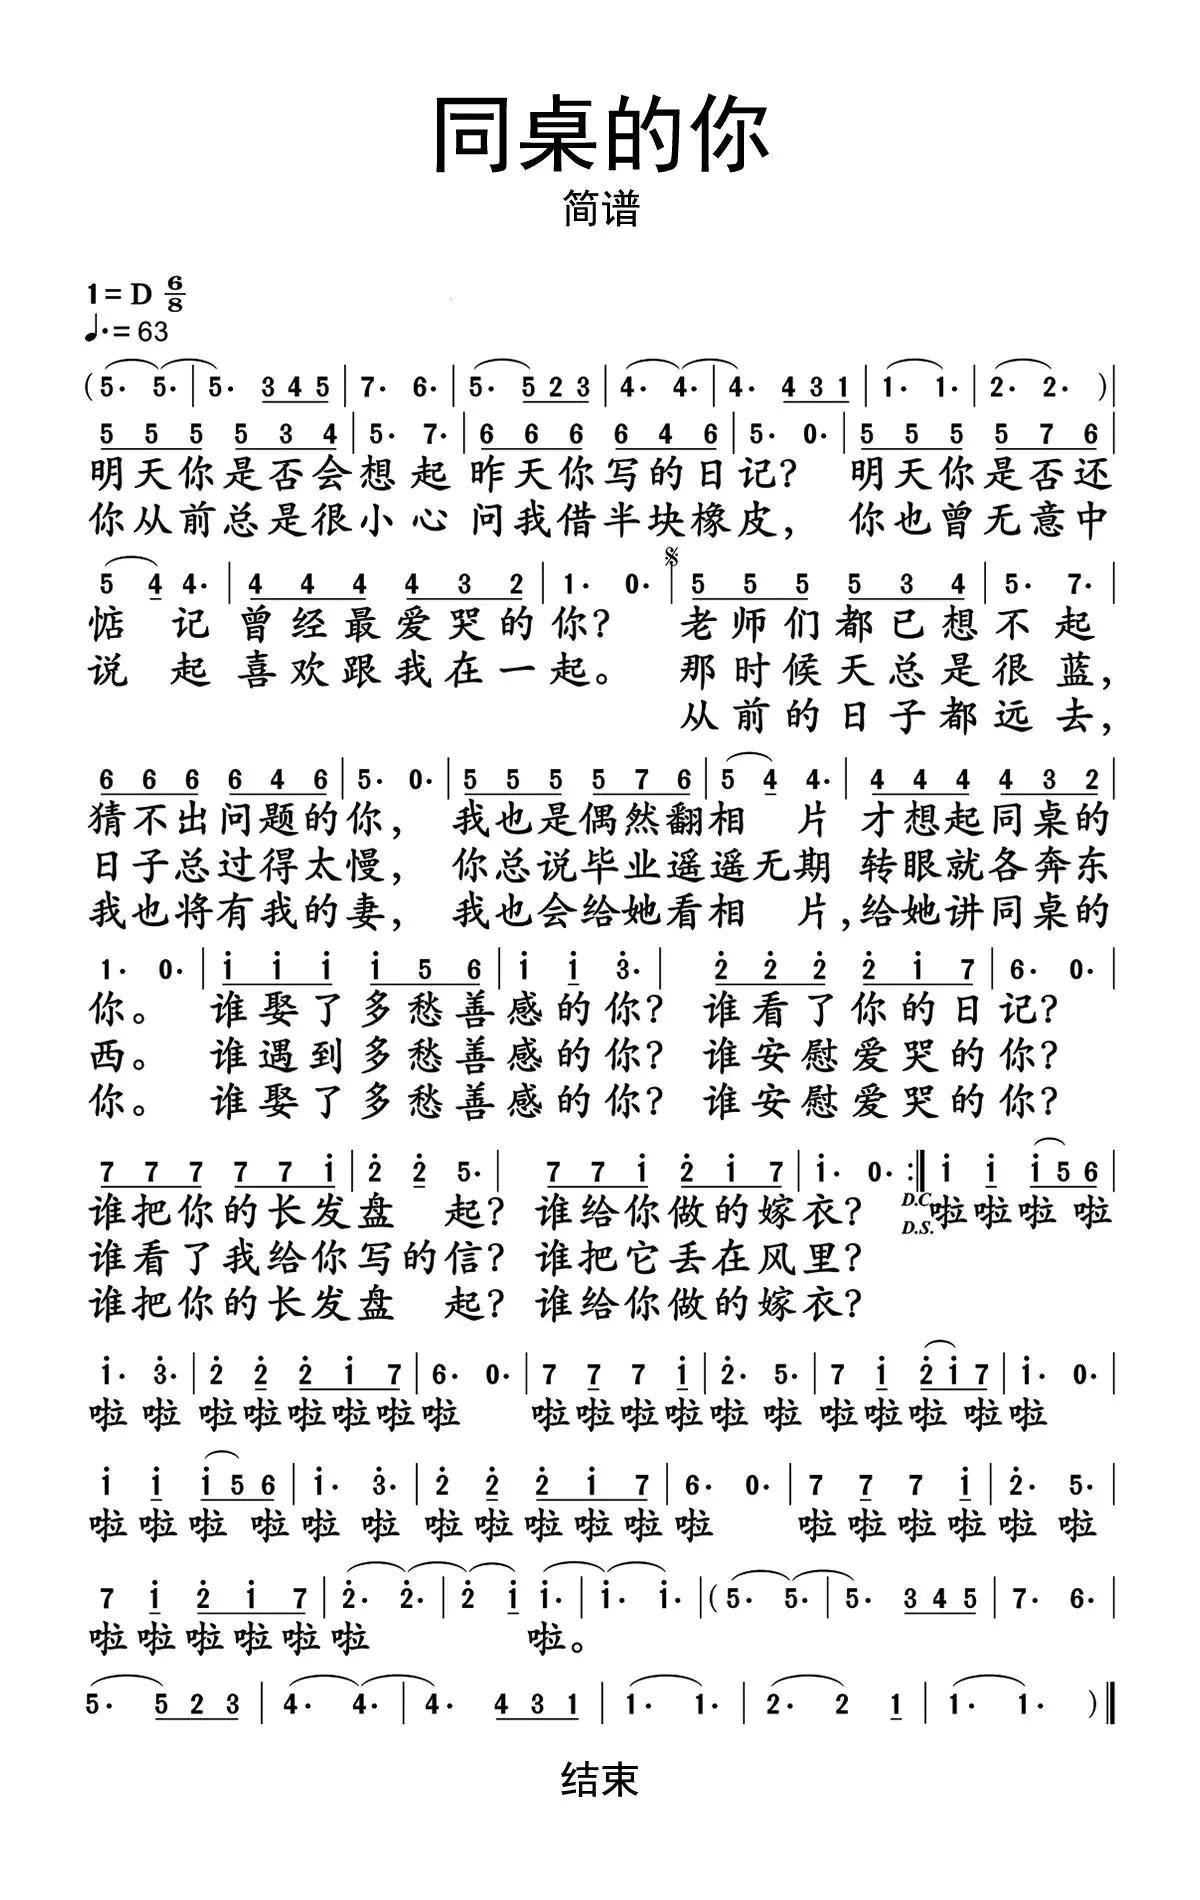 同桌的你
简谱
1=D 6/8
♩.=63
(5. 5.|5. 3 4 5|7. 6.|5. 5 2 3|4. 4.|4. 4 3 1|1. 1.|2. 2. )|
5 5 5 5 3 4|5. 7.|6 6 6 6 4 6|5. 0.|5 5 5 5 7 6|
明天你是否会想起 昨天你写的日记? 明天你是否还
你从前总是很小心 问我借半块橡皮, 你也曾无意中
5 4 4.|4 4 4 4 3 2|1. 0.|5 5 5 5 3 4|5. 7.|
惦 记 曾经最爱哭的你? 老师们都已想不起
说 起 喜欢跟我在一起。 那时候天总是很蓝,
从前的日子都远去,
6 6 6 6 4 6|5. 0.|5 5 5 5 7 6|5 4 4.|4 4 4 4 3 2|
猜不出问题的你, 我也是偶然翻相 片 才想起同桌的
日子总过得太慢, 你总说毕业遥遥无期 转眼就各奔东
我也将有我的妻, 我也会给她看相 片,给她讲同桌的
1. 0.|i i i i 5 6|i i 3̇.|2̇ 2̇ 2̇ 2̇ i 7|6. 0.|
你。 谁娶了多愁善感的你? 谁看了你的日记?
西。 谁遇到多愁善感的你? 谁安慰爱哭的你?
你。 谁娶了多愁善感的你? 谁安慰爱哭的你?
7 7 7 7 7 i|2̇ 2̇ 5.|7 7 i 2̇ i 7|i. 0.:‖i i i 5 6|
谁把你的长发盘 起? 谁给你做的嫁衣? D.C. 啦啦啦 啦
谁看了我给你写的信? 谁把它丢在风里? D.S.
谁把你的长发盘 起? 谁给你做的嫁衣?
i. 3̇.|2̇ 2̇ 2̇ i 7|6. 0.|7 7 7 i|2̇. 5.|7 i 2̇ i 7|i. 0.|
啦 啦 啦啦啦啦啦啦 啦啦啦啦啦 啦 啦啦啦 啦啦
i i i 5 6|i. 3̇.|2̇ 2̇ 2̇ i 7|6. 0.|7 7 7 i|2̇. 5.|
啦啦啦 啦 啦 啦 啦啦啦啦啦啦 啦啦啦啦啦 啦
7 i 2̇ i 7|2̇. 2̇.|2̇ i i.|i. i.|(5. 5.|5. 3 4 5|7. 6.|
啦啦啦啦啦啦 啦。
5. 5 2 3|4. 4.|4. 4 3 1|1. 1.|2. 2 1|1. 1. )‖
结束